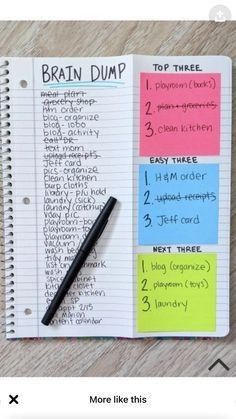 BRAIN DUMP
meal plan
grocery shop
hm order
blog-organize
blog-lobo
blog-activity
call DR
text mom
upload receipts
Jeff card
pics-organize
clean kitchen
burp cloths
library-p/u hold
laundry (sick)
laundry (catchup)
vday pic
playroom-bo
playroom-to
playroom
vacuum
wash be
tidy ma
list on mark
wash
spice cabinet
closet
kitchen
SP
appt 2/15
content calendar
TOP THREE
1. playroom (books)
2. plan + groceries
3. clean kitchen
EASY THREE
1. H&M order
2. upload receipts
3. Jeff card
NEXT THREE
1. blog (organize)
2. playroom (toys)
3. laundry
More like this